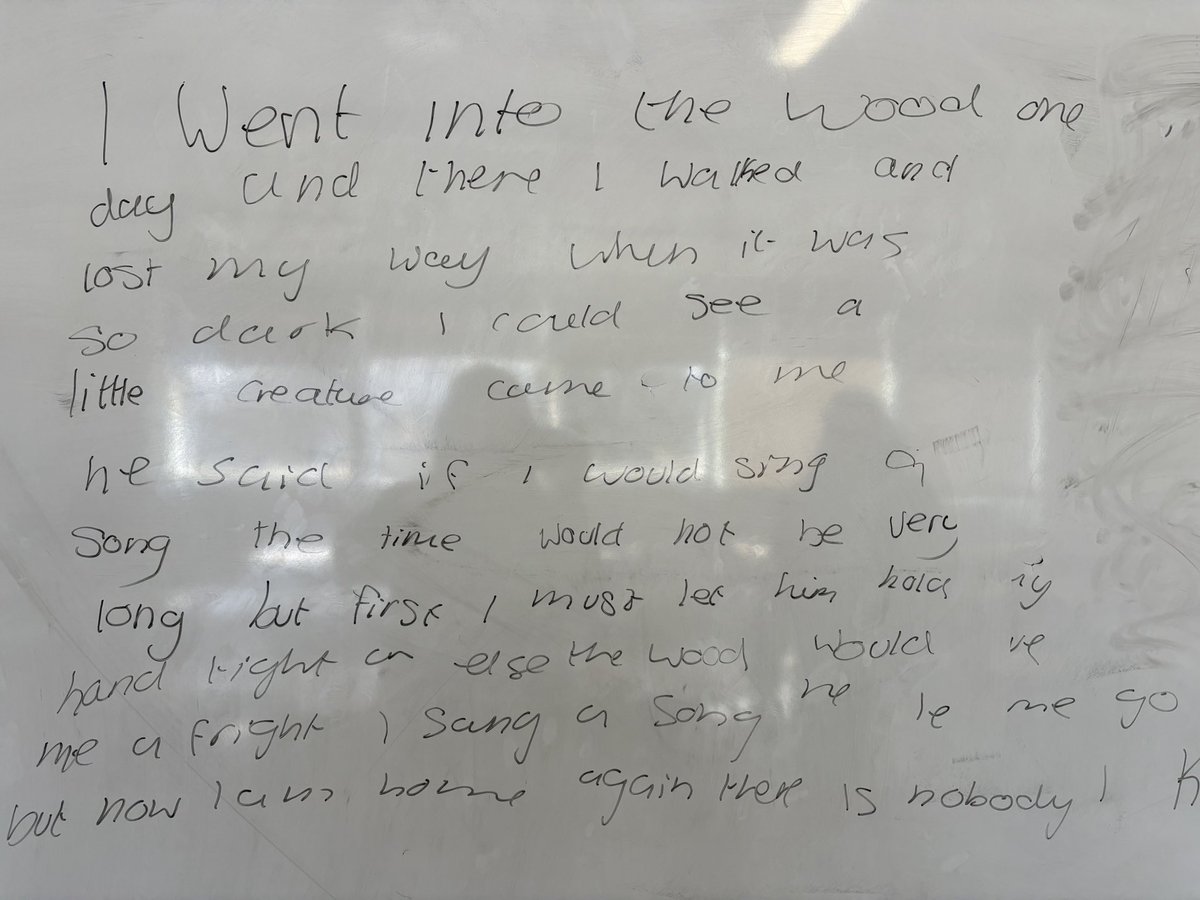 I Went into the wood one
day and there I walked and
lost my way when it was
so dark I could see a
little creature came to me
he said if I would sing a
song the time would not be very
long but first I must let him hold
hand tight or else the wood would
me a fright I sang a song he le me go
but now I am home again there is nobody I K